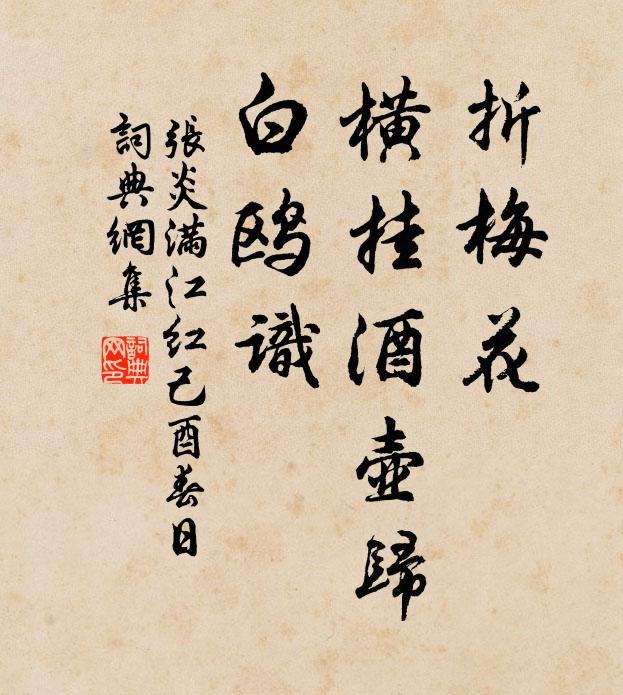 折梅花
橫挂酒壺歸
白鸥識
張炎满江红己酉春日
詞典網集
詞典
网印